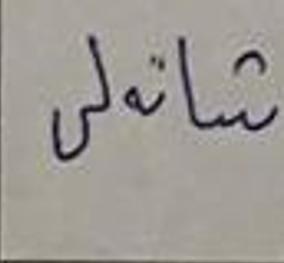 شاتەلی